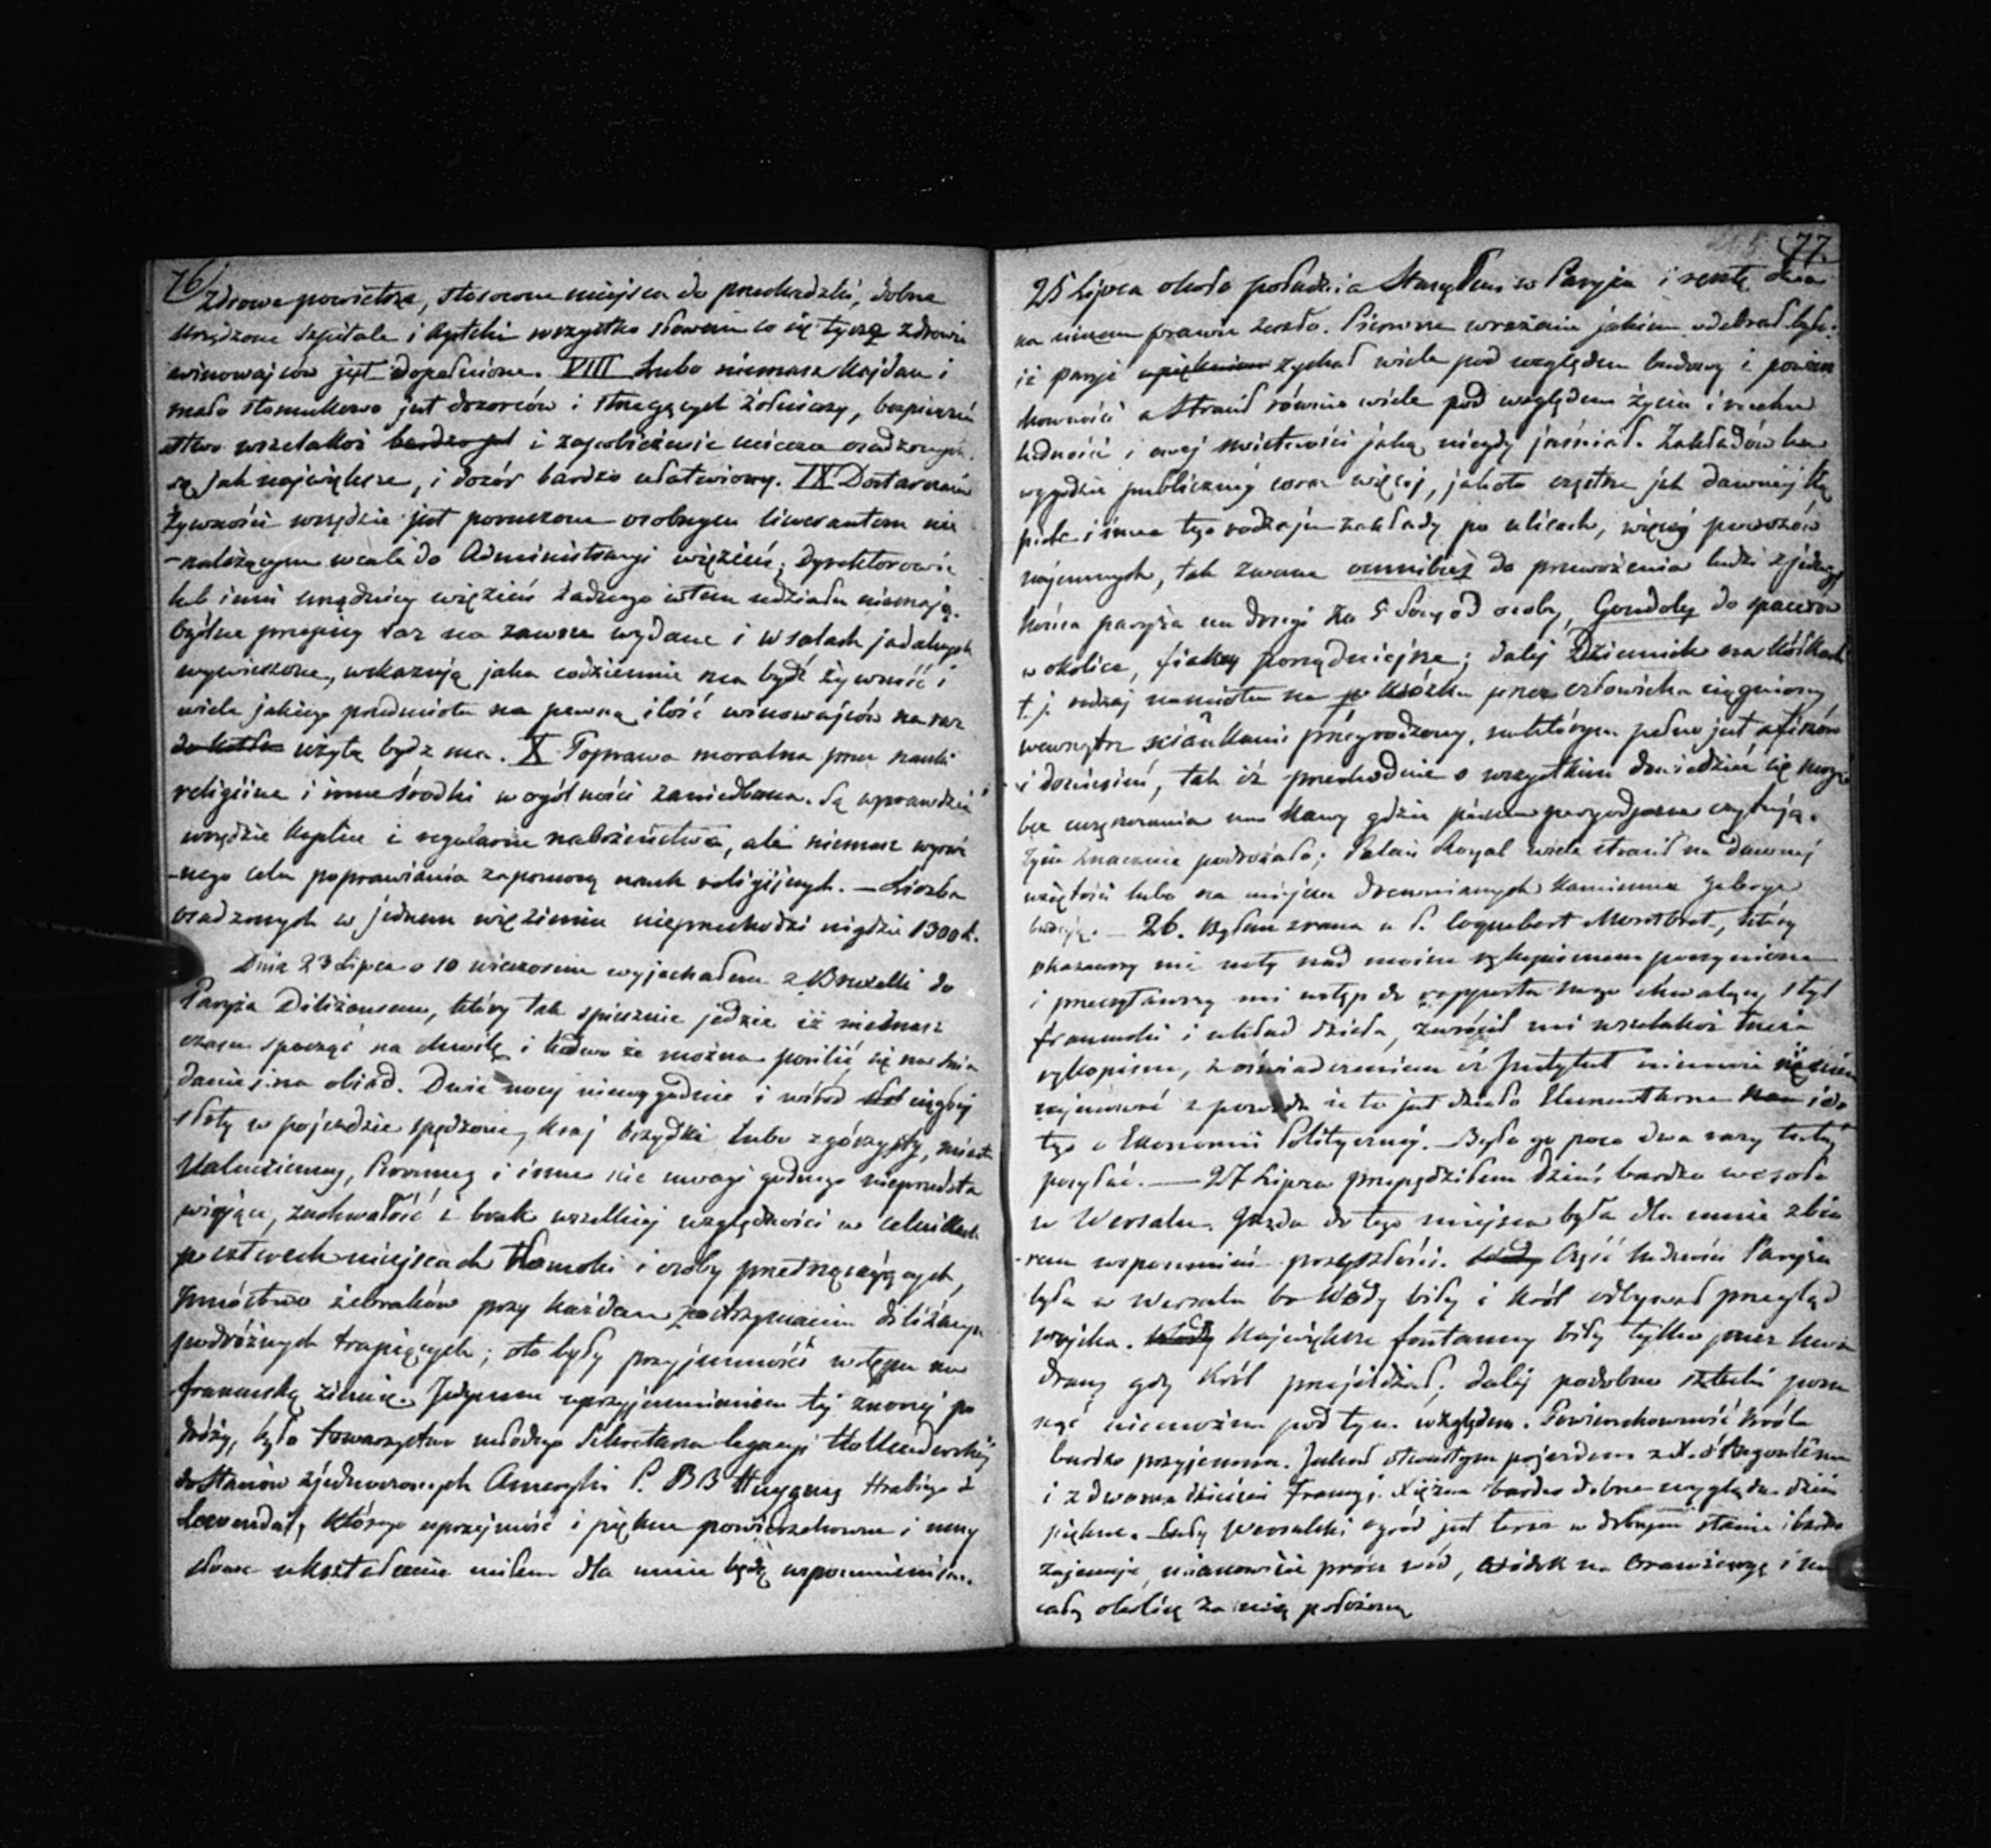 76
Zdrowe powietrze, stosowne miejsca do przechadzki, dobrze
urządzone szpitale i Apteki wszystko słowem co się tyczy zdrowia
winowajców jest dopełnione. VIII Lubo niemasz Kajdan i
mało stosunkowo jest dozorców i strzegących żołnierzy, bezpieczeń
stwo wszelakoż bardzo jest i zapobieżenie ucieczce osadzonych
są jak największe, i dozór bardzo ułatwiony. IX Dostarczanie
żywności wszędzie jest poruczone osobnym liwerantom nie
-należącym wcale do Administracyi więzień; Dyrektorowie
lub inni urzędnicy więzień żadnego w tem udziału niemają.
Ogólne przepisy raz na zawsze wydane i w salach jadalnych
wywieszone, wskazują jaka codziennie ma bydź żywność i
wiele jakiego przedmiotu na pewną ilość winowajców na raz
do kotła użyte bydz ma. X Poprawa moralna przez nauki
religiine i inne środki w ogólności zaniedbana. Są wprawdzie
wszędzie kaplice i regularne nabożeństwa, ale niemasz wyraź
-nego celu poprawiania za pomocą nauk religijnych. — Liczba
osadzonych w jednem więzieniu nieprzechodzi nigdzie 1300 l.
Dnia 23 Lipca o 10 wieczorem wyjechałem z Bruxelli do
Paryża Diliżansem, który tak spiesznie jedzie iż niemasz
czasu spocząć na chwilę i ledwo że można posilić się na śnia
danie i na obiad. Dwie nocy niewygodnie i wśród ciągłej
słoty w pojeździe spędzone, kraj brzydki lubo górzysty, miasta
Valenciennes, Peronne i inne nic uwagi godnego nieprzedsta
wiające, zuchwałość i brak wszelkiej względności w celnikach
po czterech miejscach tłomoki i osoby przetrząsających,
mnóstwo żebraków przy każdem zatrzymaniu diliżansu
podróżnych trapiących; oto były przyjemności wstępu na
francuską ziemię. Jedynem uprzyjemnieniem tej znoinej po
dróży, było towarzystwo młodego Sekretarza legacyi Hollenderskiej
do Stanów zjednoczonych Ameryki P. BB Huygens Hrabiego
Lowendal, którego uprzejmość i piękne powierzchowne i umy
słowe ukształcenie miłem dla mnie będą wspomnieniem.
77.
25 Lipca około południa Stanąłem w Paryżu i resztę dnia
na niczem prawie zeszło. Pierwsze wrażenie jakiem odebrał było:
iż Paryż upięknion zyskał wiele pod względem budowy i powierz
chowności a stracił równie wiele pod względem życia i ruchu
ludności i owej świetności jaką niegdy jaśniał. Zakładów ku
wygodzie publicznej coraz więcej, jakoto częstsze jak dawniej Ką
piele i inne tego rodzaju zakłady po ulicach, więcej powozów
najemnych, tak zwane omnibusy do przewożenia ludzi z jednego
końca paryża na drugi za 5 Sous od osoby, Gondole do spacerów
w okolice, fiakry porządniejsze; dalej Dziennik na kółkach
t. j. rodzaj namiotu na wózku przez człowieka ciągniony
wewnątrz ściankami przegrodzony, na którym pełno jest afiszów
i doniesień, tak iż przechodnie o wszystkiem dowiedzieć się mogą
bez uczęszczania na kawy gdzie pisma peryodyczne czytują.
Życie znacznie podrożało; Palais Royal wiele stracił na dawnej
wziętości lubo na miejscu drewnianych kamienne galerye
budują. — 26. Byłem zrana u P. Coquebert Montbret, który
okazawszy mi noty nad moim rękopismem poczynione
i przeczytawszy mi wstęp do rapportu swego chwalący styl
francuski i układ dzieła, zwrócił mi wszelakoż
rękopism, z oświadczeniem iż Instytut niemoże niem się
zajmować z powodu że to jest dzieło Elementarne i do
tego o Ekonomii Politycznej. Było go poco dwa razy tutaj
posyłać. — 27 Lipca przepędziłem dzień bardzo wesoło
w Wersalu. Jazda do tego miejsca była dla mnie zbio
-rem wspomnień przeszłości. Część ludności Paryża
była w Wersalu bo Wody biły i Król odbywał przegląd
wojska. Największe fontanny biły tylko przez kwa
drans gdy Król przejeżdżał; dalej podobno sztuki posu
nąć niemożna pod tym względem. Powierzchowność Króla
bardzo przyjemna. Jechał otwartym pojazdem z X. d'Angoulême
i z dwoma dziećmi Francyi. Xiężna bardzo dobrze wygląda dzieci
piękne. Cały Wersalski ogród jest teraz w dobrym stanie i bardzo
zajmuje, mianowicie prócz wód, widok na Oranżeryę i na
całą okolicę za nią położoną